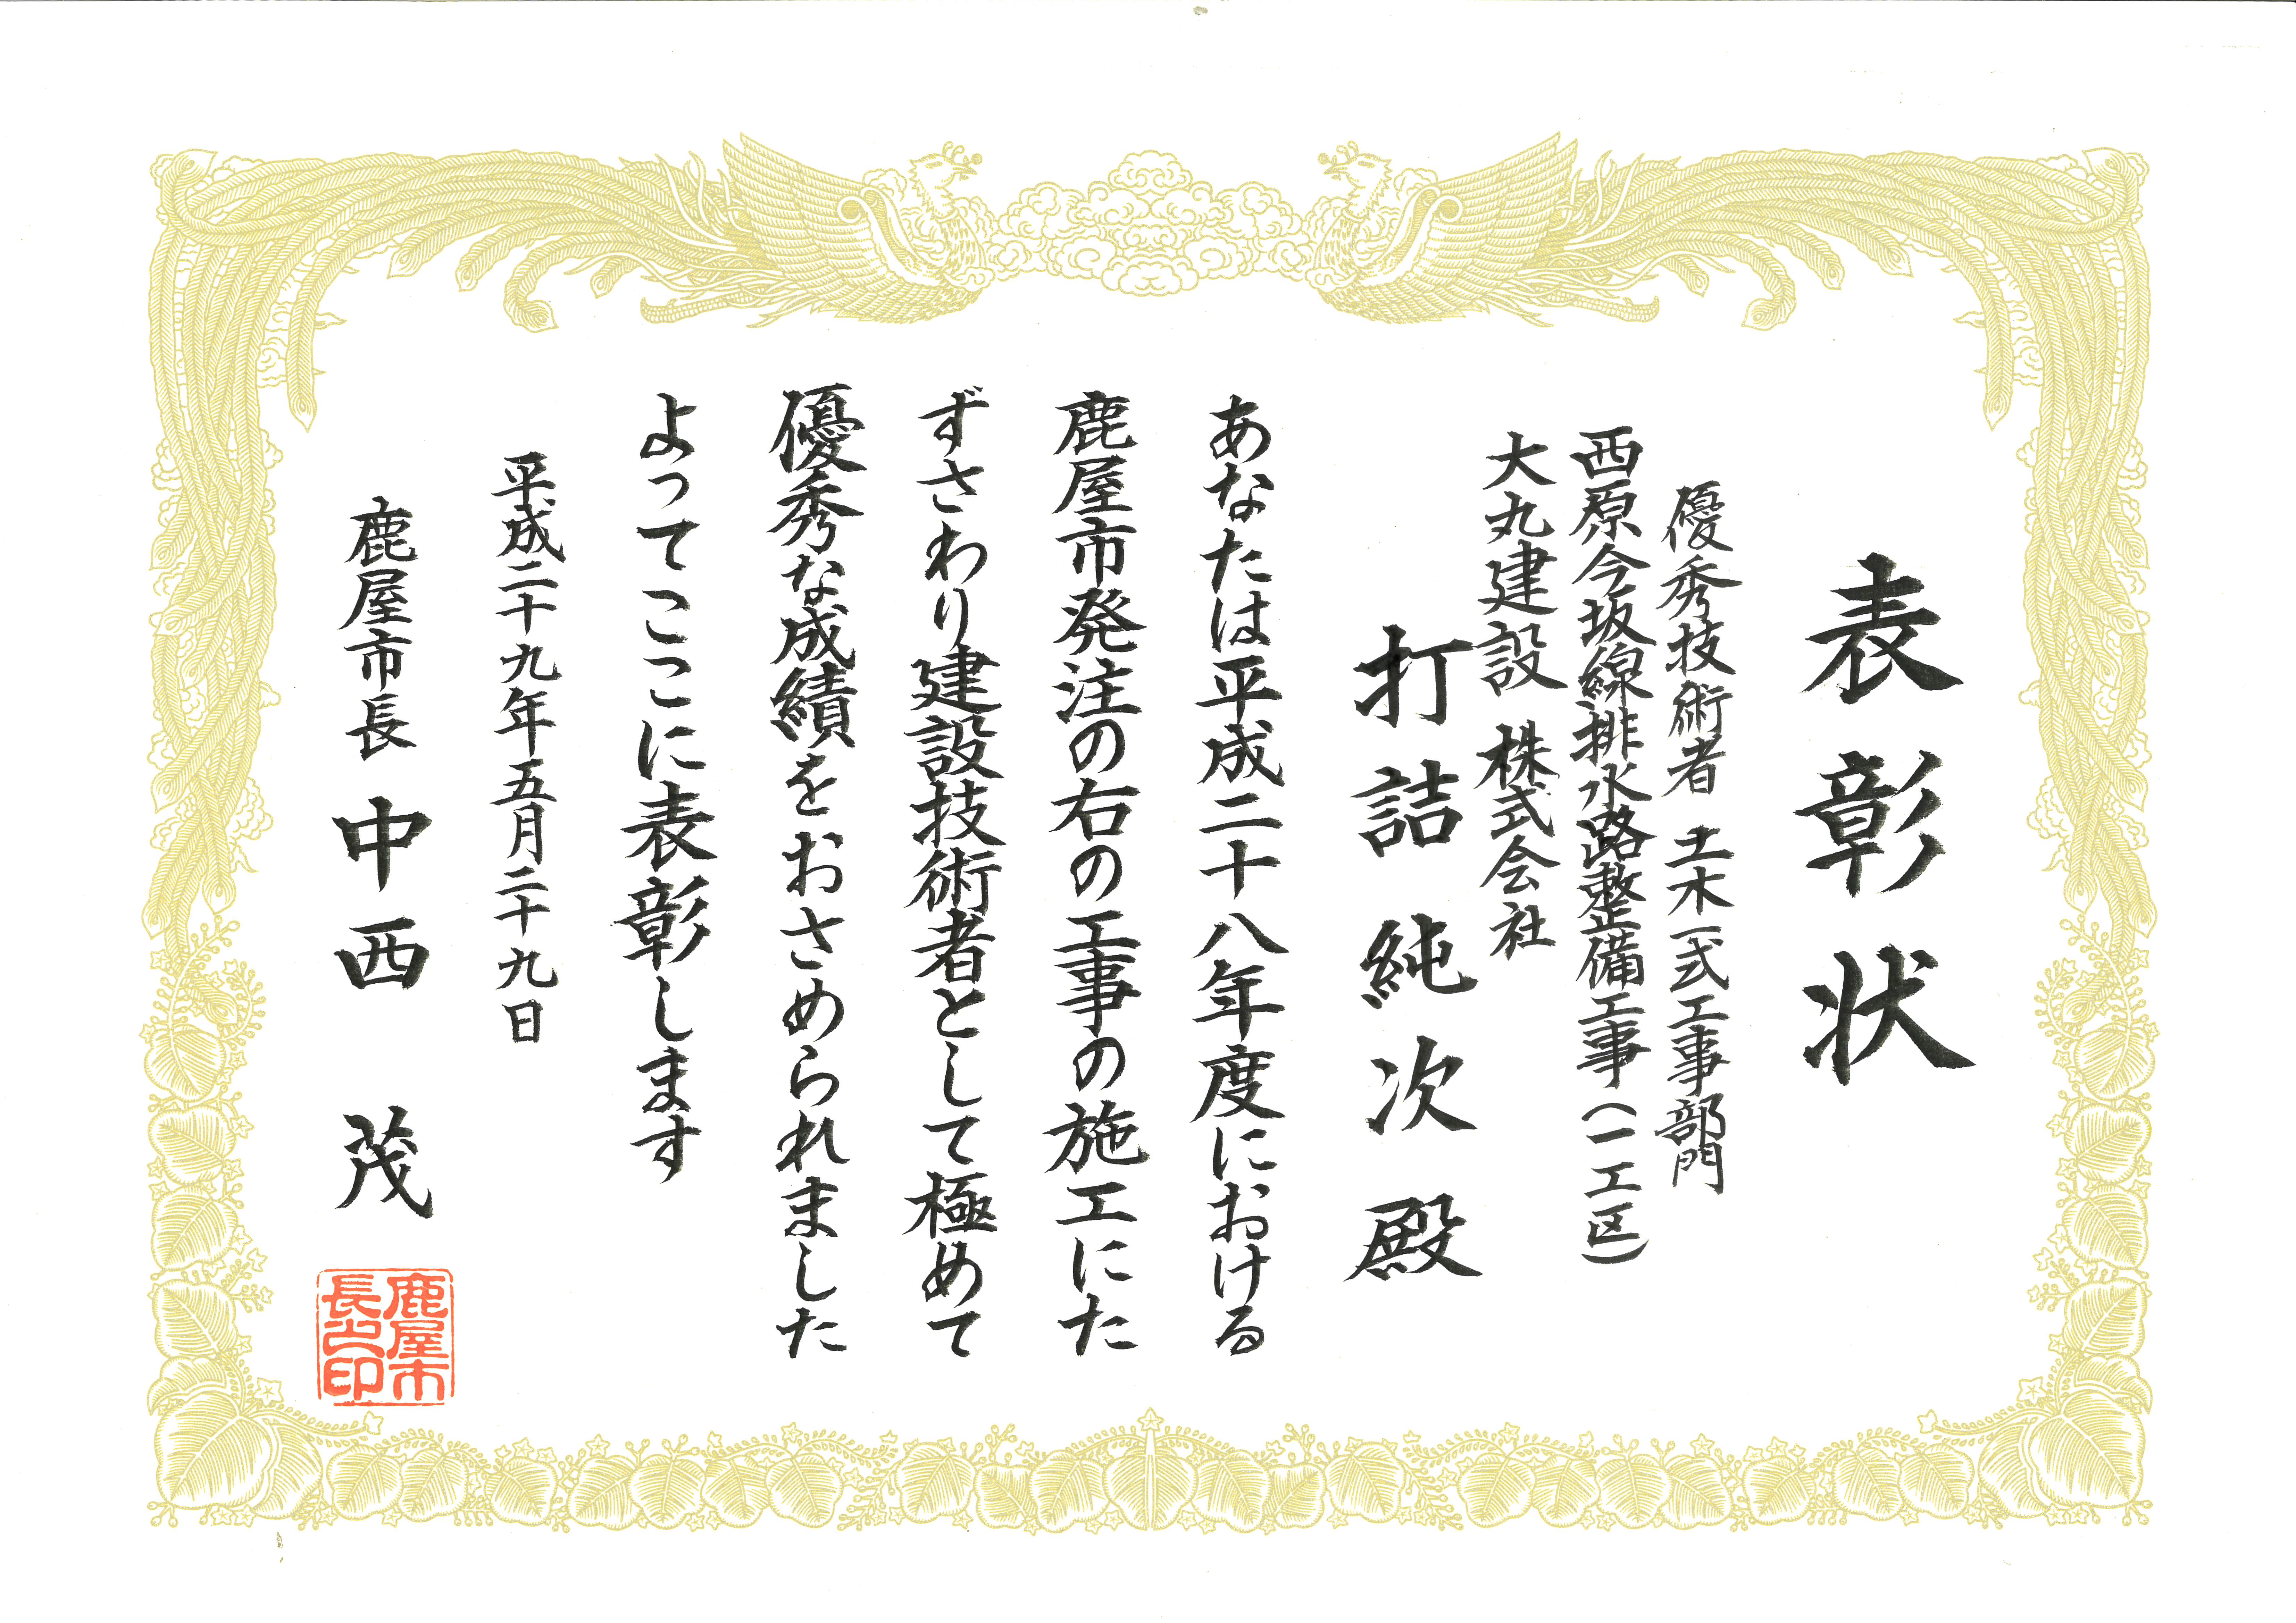 表彰状
優秀技術者 土木一式工事部門
西原今坂線排水路整備工事（一工区）
大丸建設 株式会社
打詰純次殿
あなたは平成二十八年度における
鹿屋市発注の右の工事の施工にた
ずさわり建設技術者として極めて
優秀な成績をおさめられました
よってここに表彰します
平成二十九年五月二十九日
鹿屋市長 中西 茂
鹿屋市
長之印